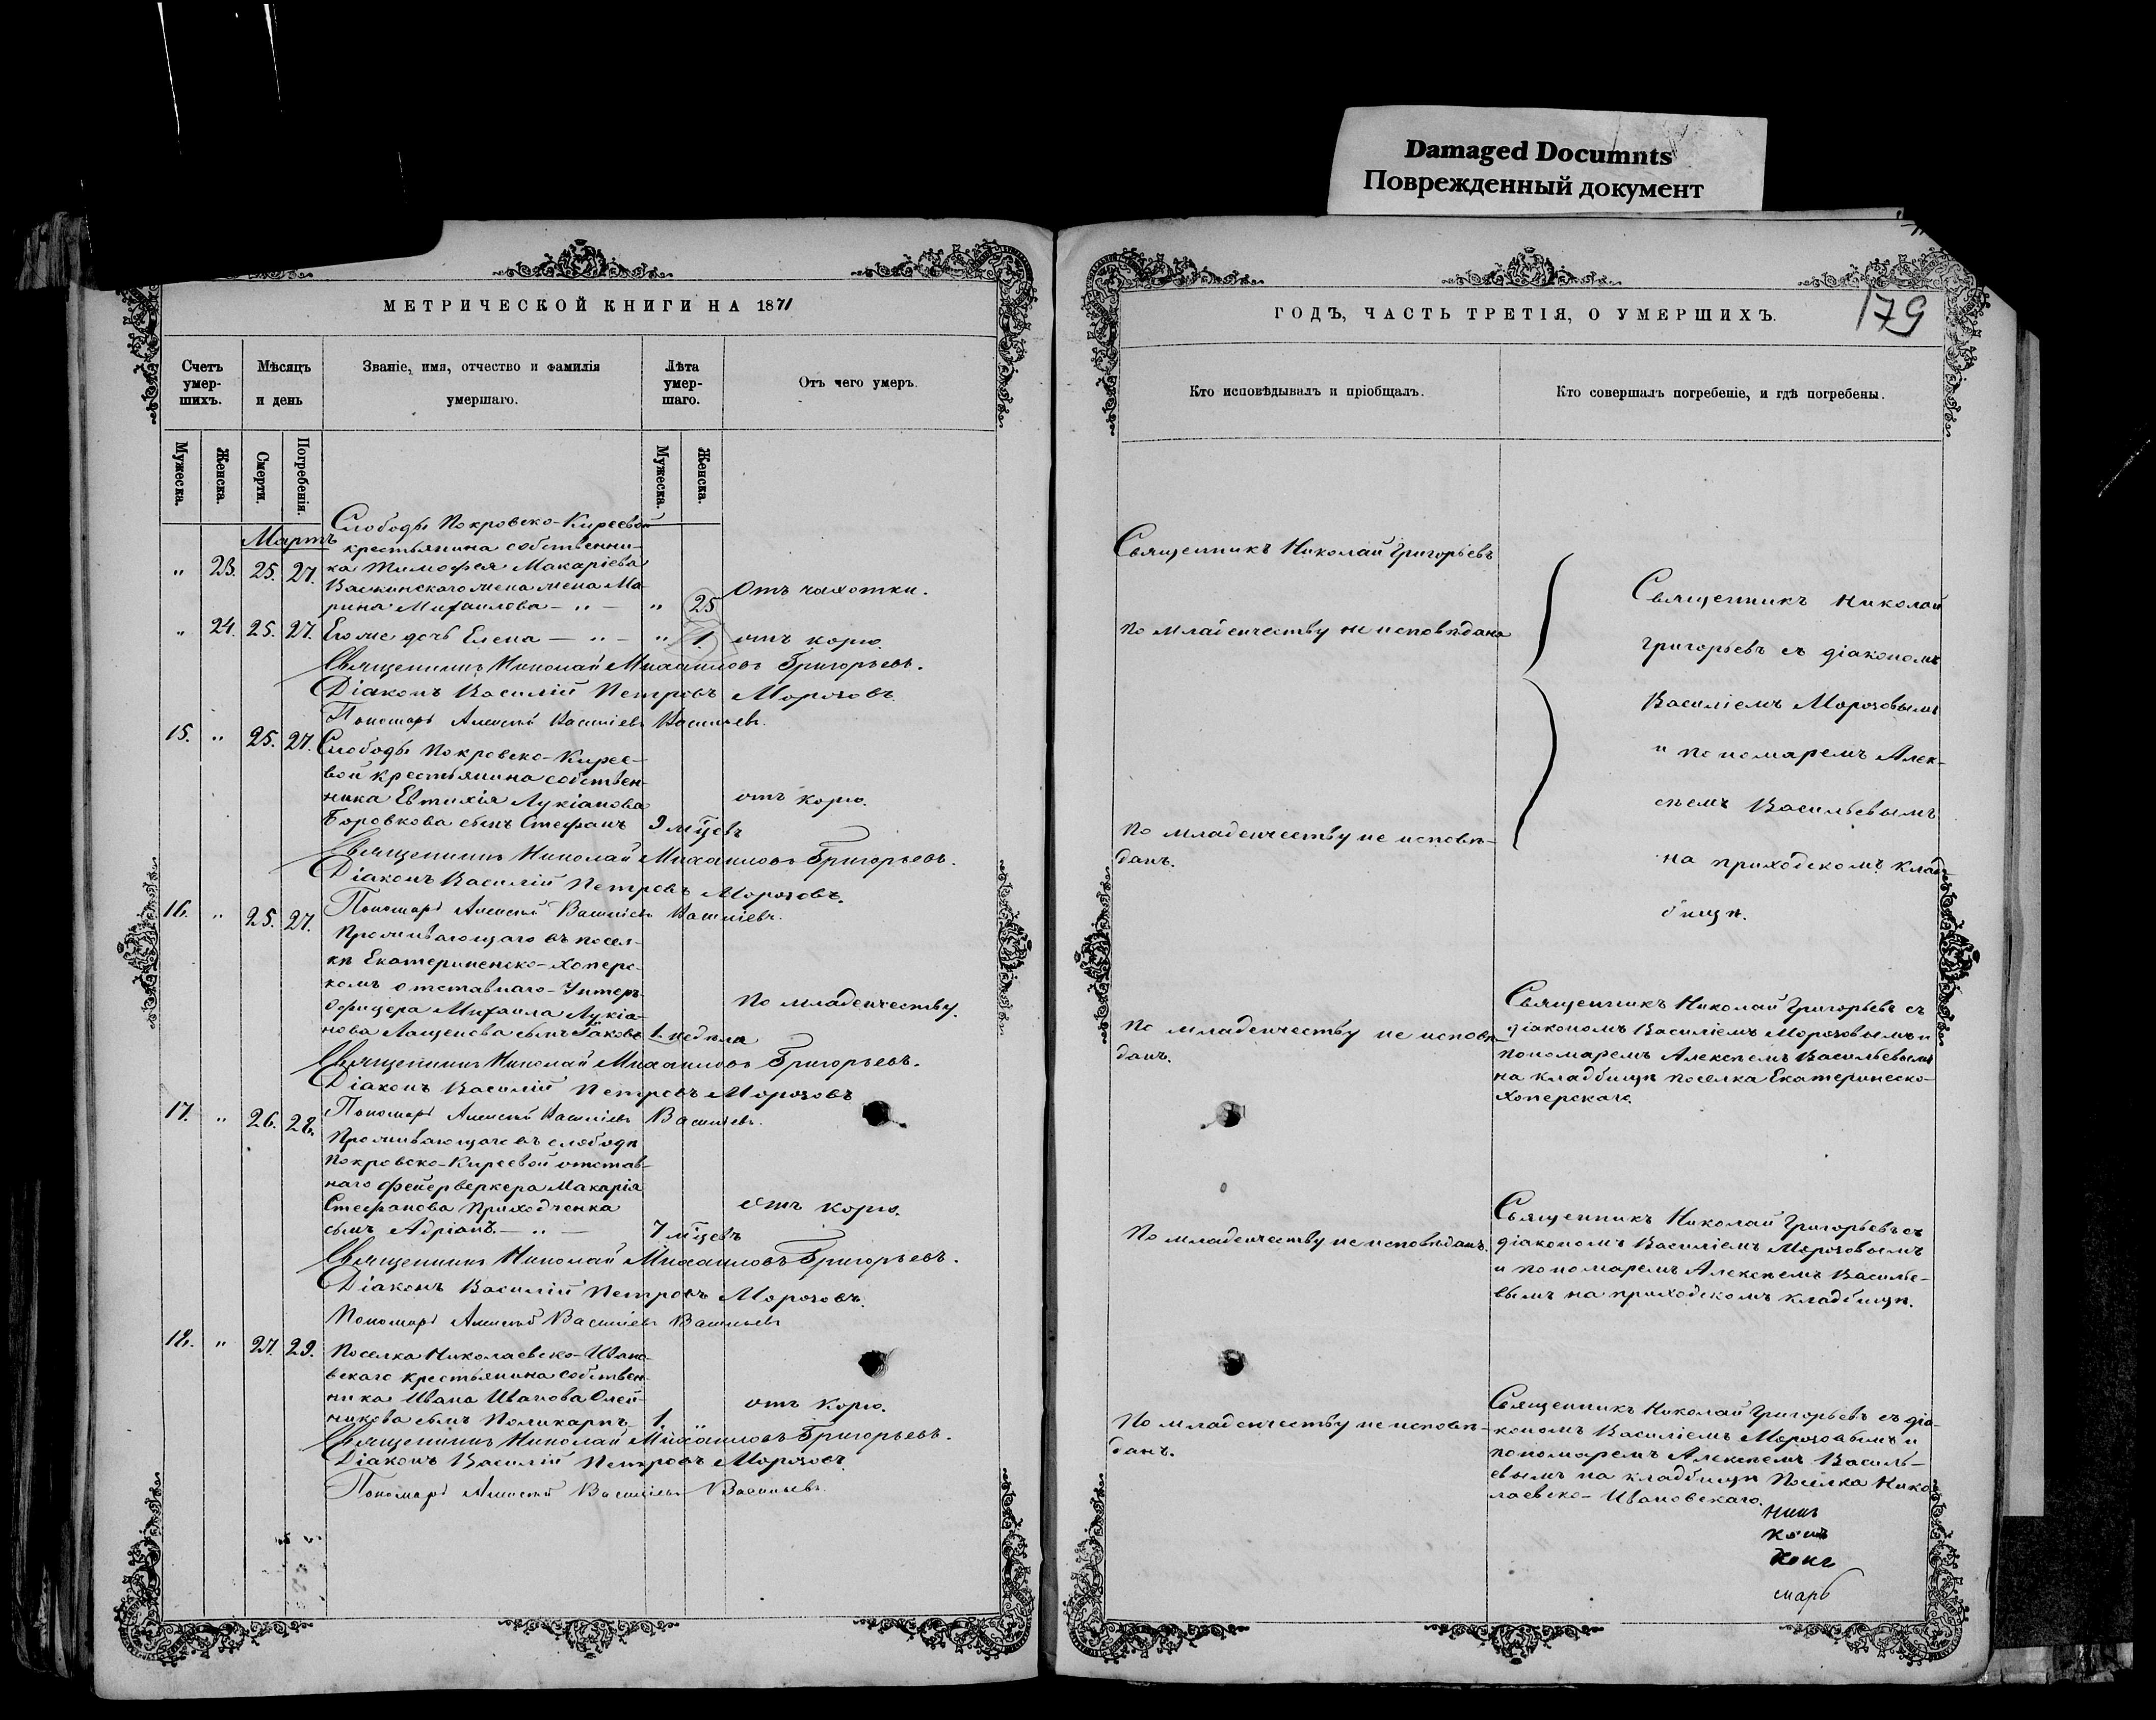 Damaged Documnts
Поврежденный документ
МЕТРИЧЕСКОЙ КНИГИ НА 1871
Счетъ умер-шихъ.
Мѣсяцъ и день
Званіе, имя, отчество и фамилія умершаго.
Лѣта умер-шаго.
Отъ чего умеръ.
Мужеска.
Женска.
Смерти.
Погребенія.
Мужеска.
Женска.
Мартъ
Слободы Покровско-Киреевой
крестьянина собственни-
" 23. 25. 27. ка Тимофея Макаріева
жена Ма-
рина Михаилова — " — " 25 Отъ чахотки.
" 24. 25. 27. Его же дочь Елена — " — " 1. отъ корю.
Священникъ Николай Михаиловъ Григорьевъ.
Діаконъ Василій Петровъ Морозовъ.
Пономарь Алексѣй Василіевъ Васильевъ.
15. " 25. 27. Слободы Покровско-Кирее-
вой крестьянина собствен-
ника Евтихія Лукіанова отъ корю.
Боровкова сынъ Стефанъ 9 мѣсцевъ
Священникъ Николай Михаиловъ Григорьевъ.
Діаконъ Василій Петровъ Морозовъ.
16. " 25. 27. Пономарь Алексѣй Василіевъ Василіевъ.
Проживающаго въ посел-
кѣ Екатериненско-Хоперс-
комъ отставнаго Унтеръ-
Офицера Михаила Лукіа- По младенчеству.
нова Лащенова сынъ Іаковъ 1. недѣля
Священникъ Николай Михаиловъ Григорьевъ.
Діаконъ Василій Петровъ Морозовъ
17. " 26. 28. Пономарь Алексѣй Василіевъ Васильевъ.
Проживающаго въ слободѣ
Покровско-Киреевой отстав-
наго фейерверкера Макарія
Стефанова Приходченка отъ корю.
сынъ Адріанъ — " — 7 мѣсцевъ
Священникъ Николай Михаиловъ Григорьевъ.
Діаконъ Василій Петровъ Морозовъ.
Пономарь Алексѣй Василіевъ Васильевъ
18. " 27. 29. Поселка Николаевско-Ивано-
вскаго крестьянина собствен-
ника Ивана Иванова Олей- отъ корю.
никова сынъ Поликарпъ 1. "
Священникъ Николай Михаиловъ Григорьевъ.
Діаконъ Василій Петровъ Морозовъ.
Пономарь Алексѣй Василіевъ Васильевъ.
179
ГОДЪ, ЧАСТЬ ТРЕТІЯ, О УМЕРШИХЪ.
Кто исповѣдывалъ и пріобщалъ.
Кто совершалъ погребеніе, и гдѣ погребены.
Священникъ Николай Григорьевъ
По младенчеству не исповѣдана
Священникъ Николай
Григорьевъ съ діакономъ
Василіемъ Морозовымъ
и пономаремъ Алек-
сѣемъ Васильевымъ
на приходскомъ клад-
бищѣ.
По младенчеству не исповѣ-
данъ.
По младенчеству не исповѣ-
данъ.
Священникъ Николай Григорьевъ съ
діакономъ Василіемъ Морозовымъ и
пономаремъ Алексѣемъ Васильевымъ
на кладбищѣ поселка Екатеринеско-
Хоперскаго.
По младенчеству не исповѣданъ.
Священникъ Николай Григорьевъ съ
діакономъ Василіемъ Морозовымъ
и пономаремъ Алексѣемъ Василье-
вымъ на приходскомъ кладбищѣ.
По младенчеству не исповѣ-
данъ.
Священникъ Николай Григорьевъ съ діа-
кономъ Василіемъ Морозовымъ и
пономаремъ Алексѣемъ Василь-
евымъ на кладбищѣ Поселка Нико-
лаевско-Ивановскаго.
марь